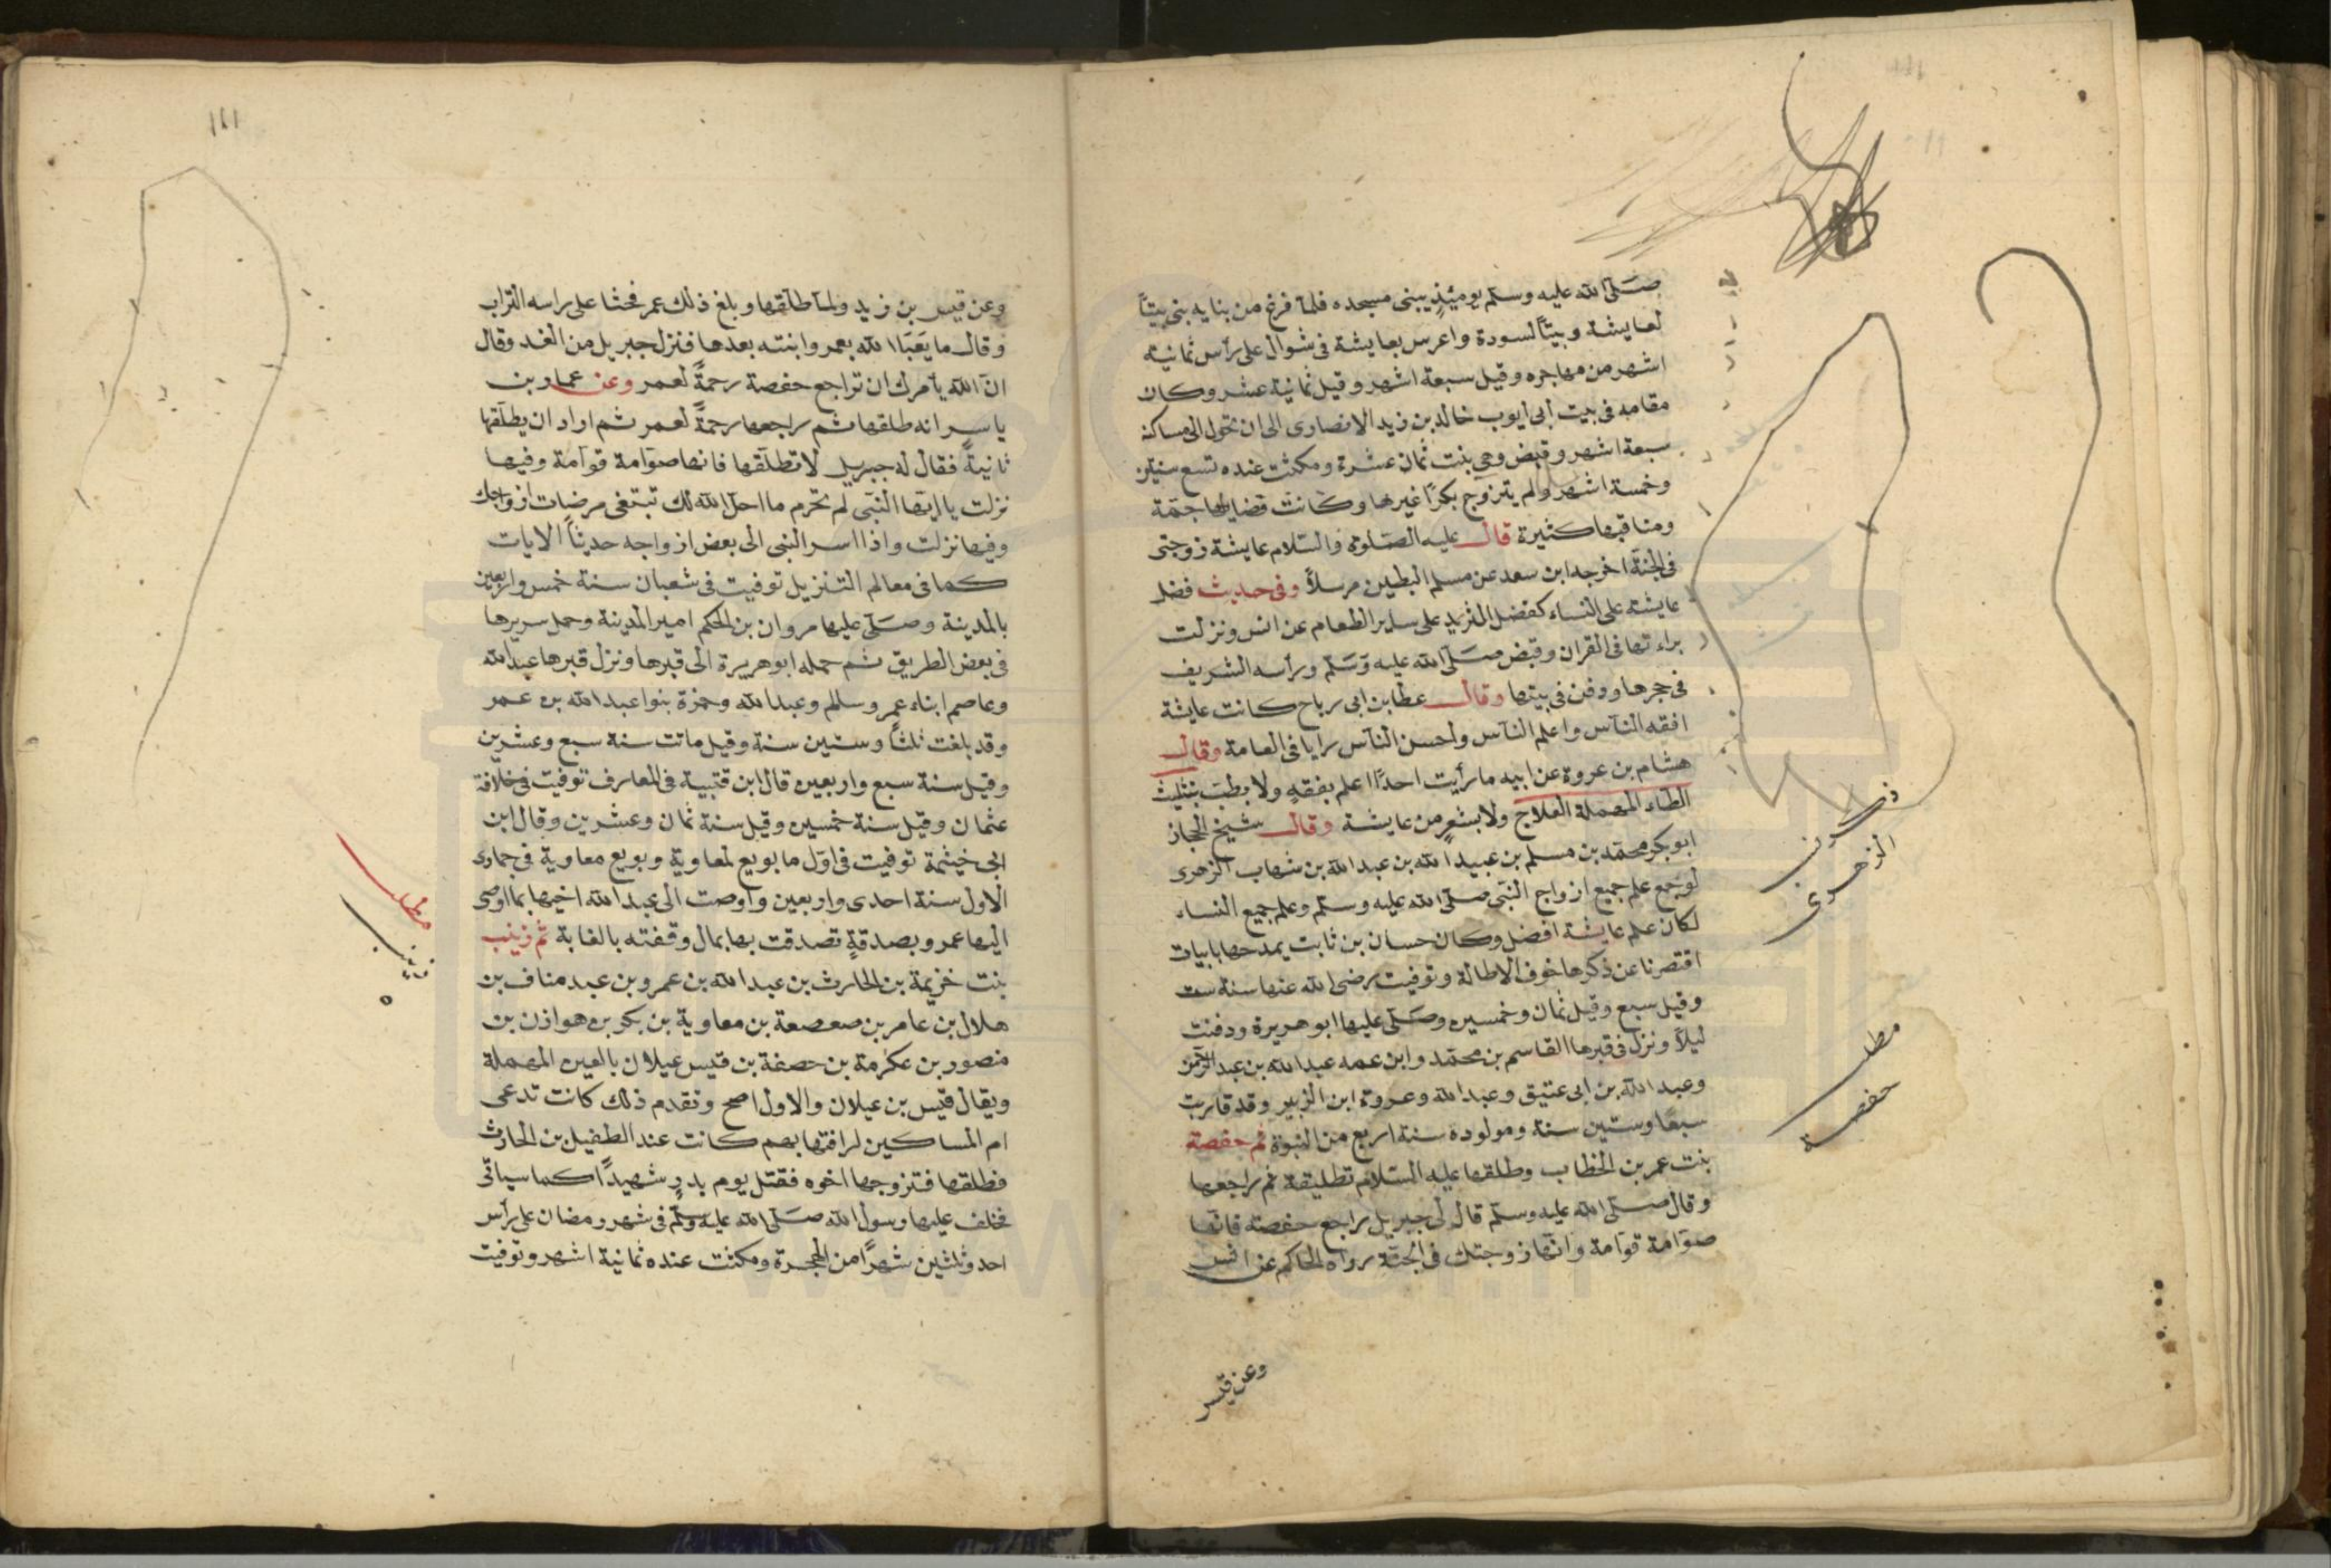 صلى الله عليه وسلم يومئذ يبنى مسجده فلما فرغ من بنايه بنى بيتاً
لعايشة وبيتاً لسودة واعرس بعايشة فى شوال على رأس ثمانية
اشهر من مهاجره وقيل سبعة اشهر وقيل ثمانية عشر وكان
مقامه فى بيت ابى ايوب خالد بن زيد الانصارى الى ان تحول الى مساكنه
سبعة اشهر وقبض وهى بنت ثمان عشرة ومكثت عنده تسع سنين
وخمسة اشهر ولم يتزوج بكرًا غيرها وكانت فضايلها جمّة
ومناقبها كثيرة قال عليه الصلوة والسلام عايشة زوجتى
فى الجنة اخرجه ابن سعد عن مسلم البطين مرسلاً وفى حديث فضل
عايشة على النساء كفضل الثريد على ساير الطعام عن انس ونزلت
براءتها فى القران وقبض صلى الله عليه وسلم ورأسه الشريف
فى حجرها ودفن فى بيتها وقال عطا بن ابى رباح كانت عايشة
افقه الناس واعلم الناس واحسن الناس رايا فى العامة وقال
هشام بن عروة عن ابيه ما رأيت احدًا اعلم بفقهٍ ولا بطب بتثليث
الطاء المهملة العلاج ولا بشعرٍ من عايشة وقال شيخ الحجاز
ابو بكر محمد بن مسلم بن عبيد الله بن عبد الله بن شهاب الزهرى
لو جمع علم جميع ازواج النبى صلى الله عليه وسلم وعلم جميع النساء
لكان علم عايشة افضل وكان حسان بن ثابت يمدحها بابيات
اقتصرنا عن ذكرها خوف الاطالة وتوفيت رضى الله عنها سنة ست
وقيل سبع وقيل ثمان وخمسين وصلى عليها ابو هريرة ودفنت
ليلاً ونزل فى قبرها القاسم بن محمد وابن عمه عبد الله بن عبد الرحمن
وعبد الله بن ابى عتيق وعبد الله وعروة ابن الزبير وقد قاربت
سبعًا وستين سنة ومولوده سنة اربع من النبوة ثم حفصة
بنت عمر بن الخطاب وطلقها عليه السلام تطليقة ثم راجعها
وقال صلى الله عليه وسلم قال لى جبريل راجع حفصة فانها
صوّامة قوامة وانها زوجتك فى الجنة رواه الحاكم عن انس
وعن قيس
الزهرى
مطلب
حفصة
١٢١
وعن قيس بن زيد ولما طلقها وبلغ ذلك عمر فحثا على راسه التراب
وقال ما يَعبَا الله بعمر وابنته بعدها فنزل جبريل من الغد وقال
انّ الله يأمرك ان تراجع حفصة رحمةً لعمر وعن عمار بن
ياسر انه طلقها ثم راجعها رحمةً لعمر ثم اراد ان يطلقها
ثانيةً فقال له جبريل لا تطلقها فانها صوّامة قوّامة وفيها
نزلت يا ايها النبى لم تحرم ما احل الله لك تبتغى مرضات ازواجك
وفيها نزلت واذا اسر النبى الى بعض ازواجه حديثاً الايات
كما فى معالم التنزيل توفيت فى شعبان سنة خمس واربعين
بالمدينة وصلى عليها مروان بن الحكم امير المدينة وحمل سريرها
فى بعض الطريق ثم حمله ابو هريرة الى قبرها ونزل قبرها عبد الله
وعاصم ابناء عمر وسالم وعبد الله وحمزة بنوا عبد الله بن عمر
وقد بلغت ثلثاً وستين سنة وقيل ماتت سنة سبع وعشرين
وقيل سنة سبع واربعين قال ابن قتيبة فى المعارف توفيت فى خلافة
عثمان وقيل سنة خمسين وقيل سنة ثمان وعشرين وقال ابن
ابى خيثمة توفيت فى اوّل ما بويع لمعاوية وبويع معاوية فى جمادى
الاول سنة احدى واربعين واوصت الى عبد الله اخيها بما اوصى
اليها عمر وبصدقةٍ تصدقت بها بمال وقفته بالغابة ثم زينب
بنت خزيمة بن الحارث بن عبد الله بن عمرو بن عبد مناف بن
هلال بن عامر بن صعصعة بن معاوية بن بكر بن هوازن بن
منصور بن عكرمة بن حصفة بن قيس عيلان بالعين المهملة
ويقال قيس بن عيلان والاول اصح وتقدم ذلك كانت تدعى
ام المساكين لرافتها بهم كانت عند الطفيل بن الحارث
فطلقها فتزوجها اخوه فقتل يوم بدرٍ شهيدًا كما سياتى
فخلف عليها رسول الله صلى الله عليه وسلم فى شهر رمضان على رأس
احد وثلثين شهرًا من الهجرة ومكثت عنده ثمانية اشهر وتوفيت
مطلب
زينب